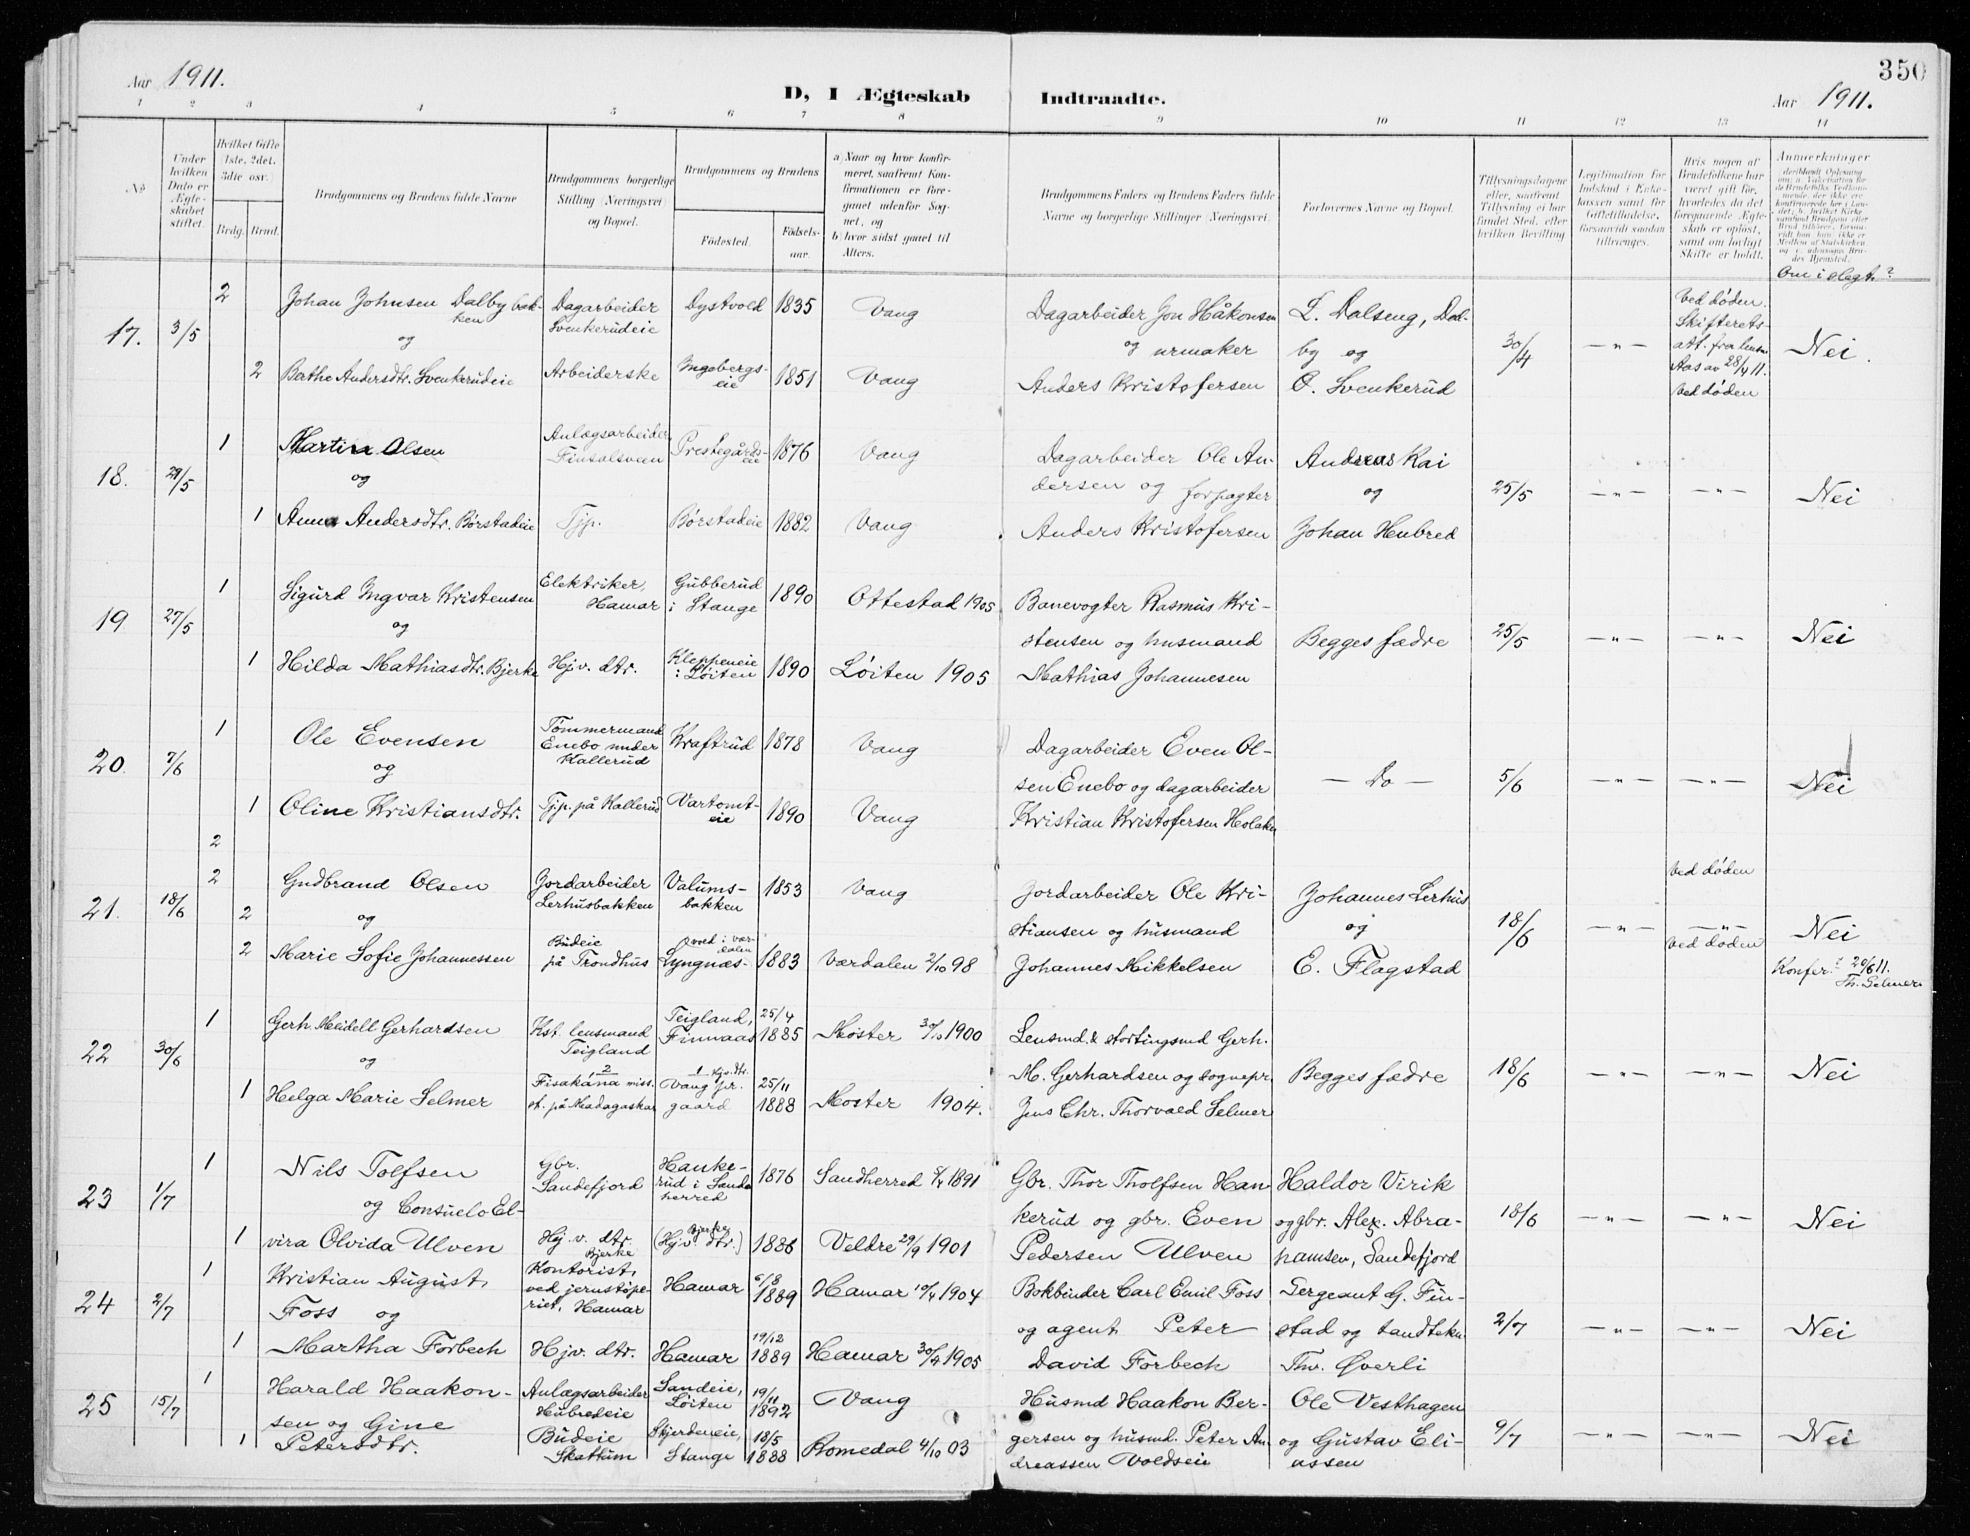 350
Aar 1911.
D, I Ægteskab Indtraadte.
Aar 1911.
1 2 3 4 5 6 7 8 9 10 11 12 13 14
No.
Under hvilken Dato er Ægteskabet stiftet.
Hvilket Gifte 1ste, 2det, 3die osv.)
Brdg. Brud.
Brudgommens og Brudens fulde Navne
Brudgommens borgerlige Stilling (Næringsvei) og Bopæl.
Brudgommens og Brudens
Födested.
Födsels-aar.
a) Naar og hvor konfirmeret, saafremt Konfirmationen er foregaaet udenfor Sognet, og
b) hvor sidst gaaet til Alters.
Brudgommens Faders og Brudens Faders fulde Navne og borgerlige Stillinger (Næringsvei).
Forlovernes Navne og Bopæl.
Tillysningsdagene eller, saafremt Tillysning ei har fundet Sted, efter hvilken Bevilling
Legitimation for Indskud i Enkekassen samt for Giftetilladelse, forsaavidt saadan tiltrænges.
Hvis nogen af Brudefolkene har været gift før, hvorledes da det foregaaende Ægteskab er opløst, samt om lovligt Skifte er holdt.
Anmærkninger
Om i slegt?
17. 3/5
2 Johan Johnsen Dalbybakken Dagarbeider Svenkerudeie Dystvold 1835 Vang
og
2 Berthe Andersdtr. Svenkerudeie Arbeiderske Ingebergseie 1851 Vang
Dagarbeider Jon Håkonsen og urmaker Anders Kristofersen
L. Dalseng, Dalby og O. Svenkerud
30/4 — " — Ved døden. Skifterets-att. fra lensm. Aas av 28/4 11. Ved døden Nei.
18. 29/5
1 Martin Olsen Anlægsarbeider Finsalsveen Prestegårdseie 1876 Vang
og
1 Anna Andersdtr. Børstadeie Tjp. Børstadeie 1882 Vang
Dagarbeider Ole Andersen og forpagter Anders Kristofersen
Andreas Kai og Johan Henbred
25/5 — " — — " — Nei
19 27/5
1 Sigurd Ingvar Kristensen Elektriker, Hamar Gubberud i Stange 1890 Ottestad 1905
og
1 Hilda Mathiasdtr. Bjerke Hjv. dtr. Kleppeneie i Løiten 1890 Løiten 1905
Banevogter Rasmus Kristensen og husmand Mathias Johannesen
Begges fædre
25/5 — " — — " — Nei
20. 7/6
1 Ole Evensen Tømmermand Enebo under Kallerud Kraftrud 1878 Vang
og
1 Oline Kristiansdtr. Tjp. på Kallerud Vartomteie 1890 Vang
Dagarbeider Even Olsen Enebo og dagarbeider Kristian Kristofersen
— Do —
5/6 — " — — " — Nei
2
21. 18/6
2 Gudbrand Olsen Jordarbeider Lerhusbakken Valumsbakken 1853 Vang
2 og
2 Marie Sofie Johannessen Budeie på Trondhus Lyngnæs- 1883 Værdalen 2/10 98
Jordarbeider Ole Kristiansen og husmand Johannes Mikkelsen
Johannes Lerhus og E. Flagstad
18/6 — " — Ved døden — " — Ved døden Nei
Konfer. 20/6 11. Th. Selmer
22 30/6
1 Gerh. Meidell Gerhardsen Kst. lensmand Teigland Teigland, Finnaas 25/4 1885 Moster 30/9 1900
og
1 Helga Marie Selmer Fisakána miss. st. på Madagaskar Hjv. dtr. Vang pr. gaard 25/11 1888 Moster 1904.
Lensmd. & stortingsmd Gerh. M. Gerhardsen og sognepr. Jens Chr. Thorvald Selmer
Begges fædre
18/6 — " — — " — Nei
23 1/7
1 Nils Tolfsen Gbr. Sandefjord Hankerud i Sandeherred 1876 Sandherred 1891
og Consuelo El-
1 vira Olvida Ulven Hj. v. dtr. Bjerke (Hjv. dtr.) Bjerke 1886 Veldre 29/9 1901
Gbr. Thor Tholfsen Hankerud og gbr. Even Pedersen Ulven
Haldor Virik og gbr. Alex. Abrahamsen, Sandefjord
18/6 — " — — " — Nei
24 2/7
1 Kristian August Foss og Kontorist ved jernstøperiet, Hamar Hamar 6/8 1889 Hamar 10/4 1904
1 Martha Forbech Hjv. dtr. Hamar 19/12 1889 Hamar 30/4 1905
Bokbinder Carl Emil Foss og agent Peter David Forbech
Sergeant G. Finstad og tandtekn. Thv. Øverli
2/7 — " — — " — Nei
25 15/7
1 Harald Haakonsen og Gine Anlægsarbeider Hubredeie Sandeie, Løiten 19/11 1892 Vang
1 Petersdtr. Budeie Skattum Stjerdeneie, Stange 18/5 1888 Romedal 4/10 03
Husmd Haakon Bergersen og husmd. Peter Andreassen Voldseie
Ole Vesthagen og Gustav Eliassen
9/7 — " — — " — Nei